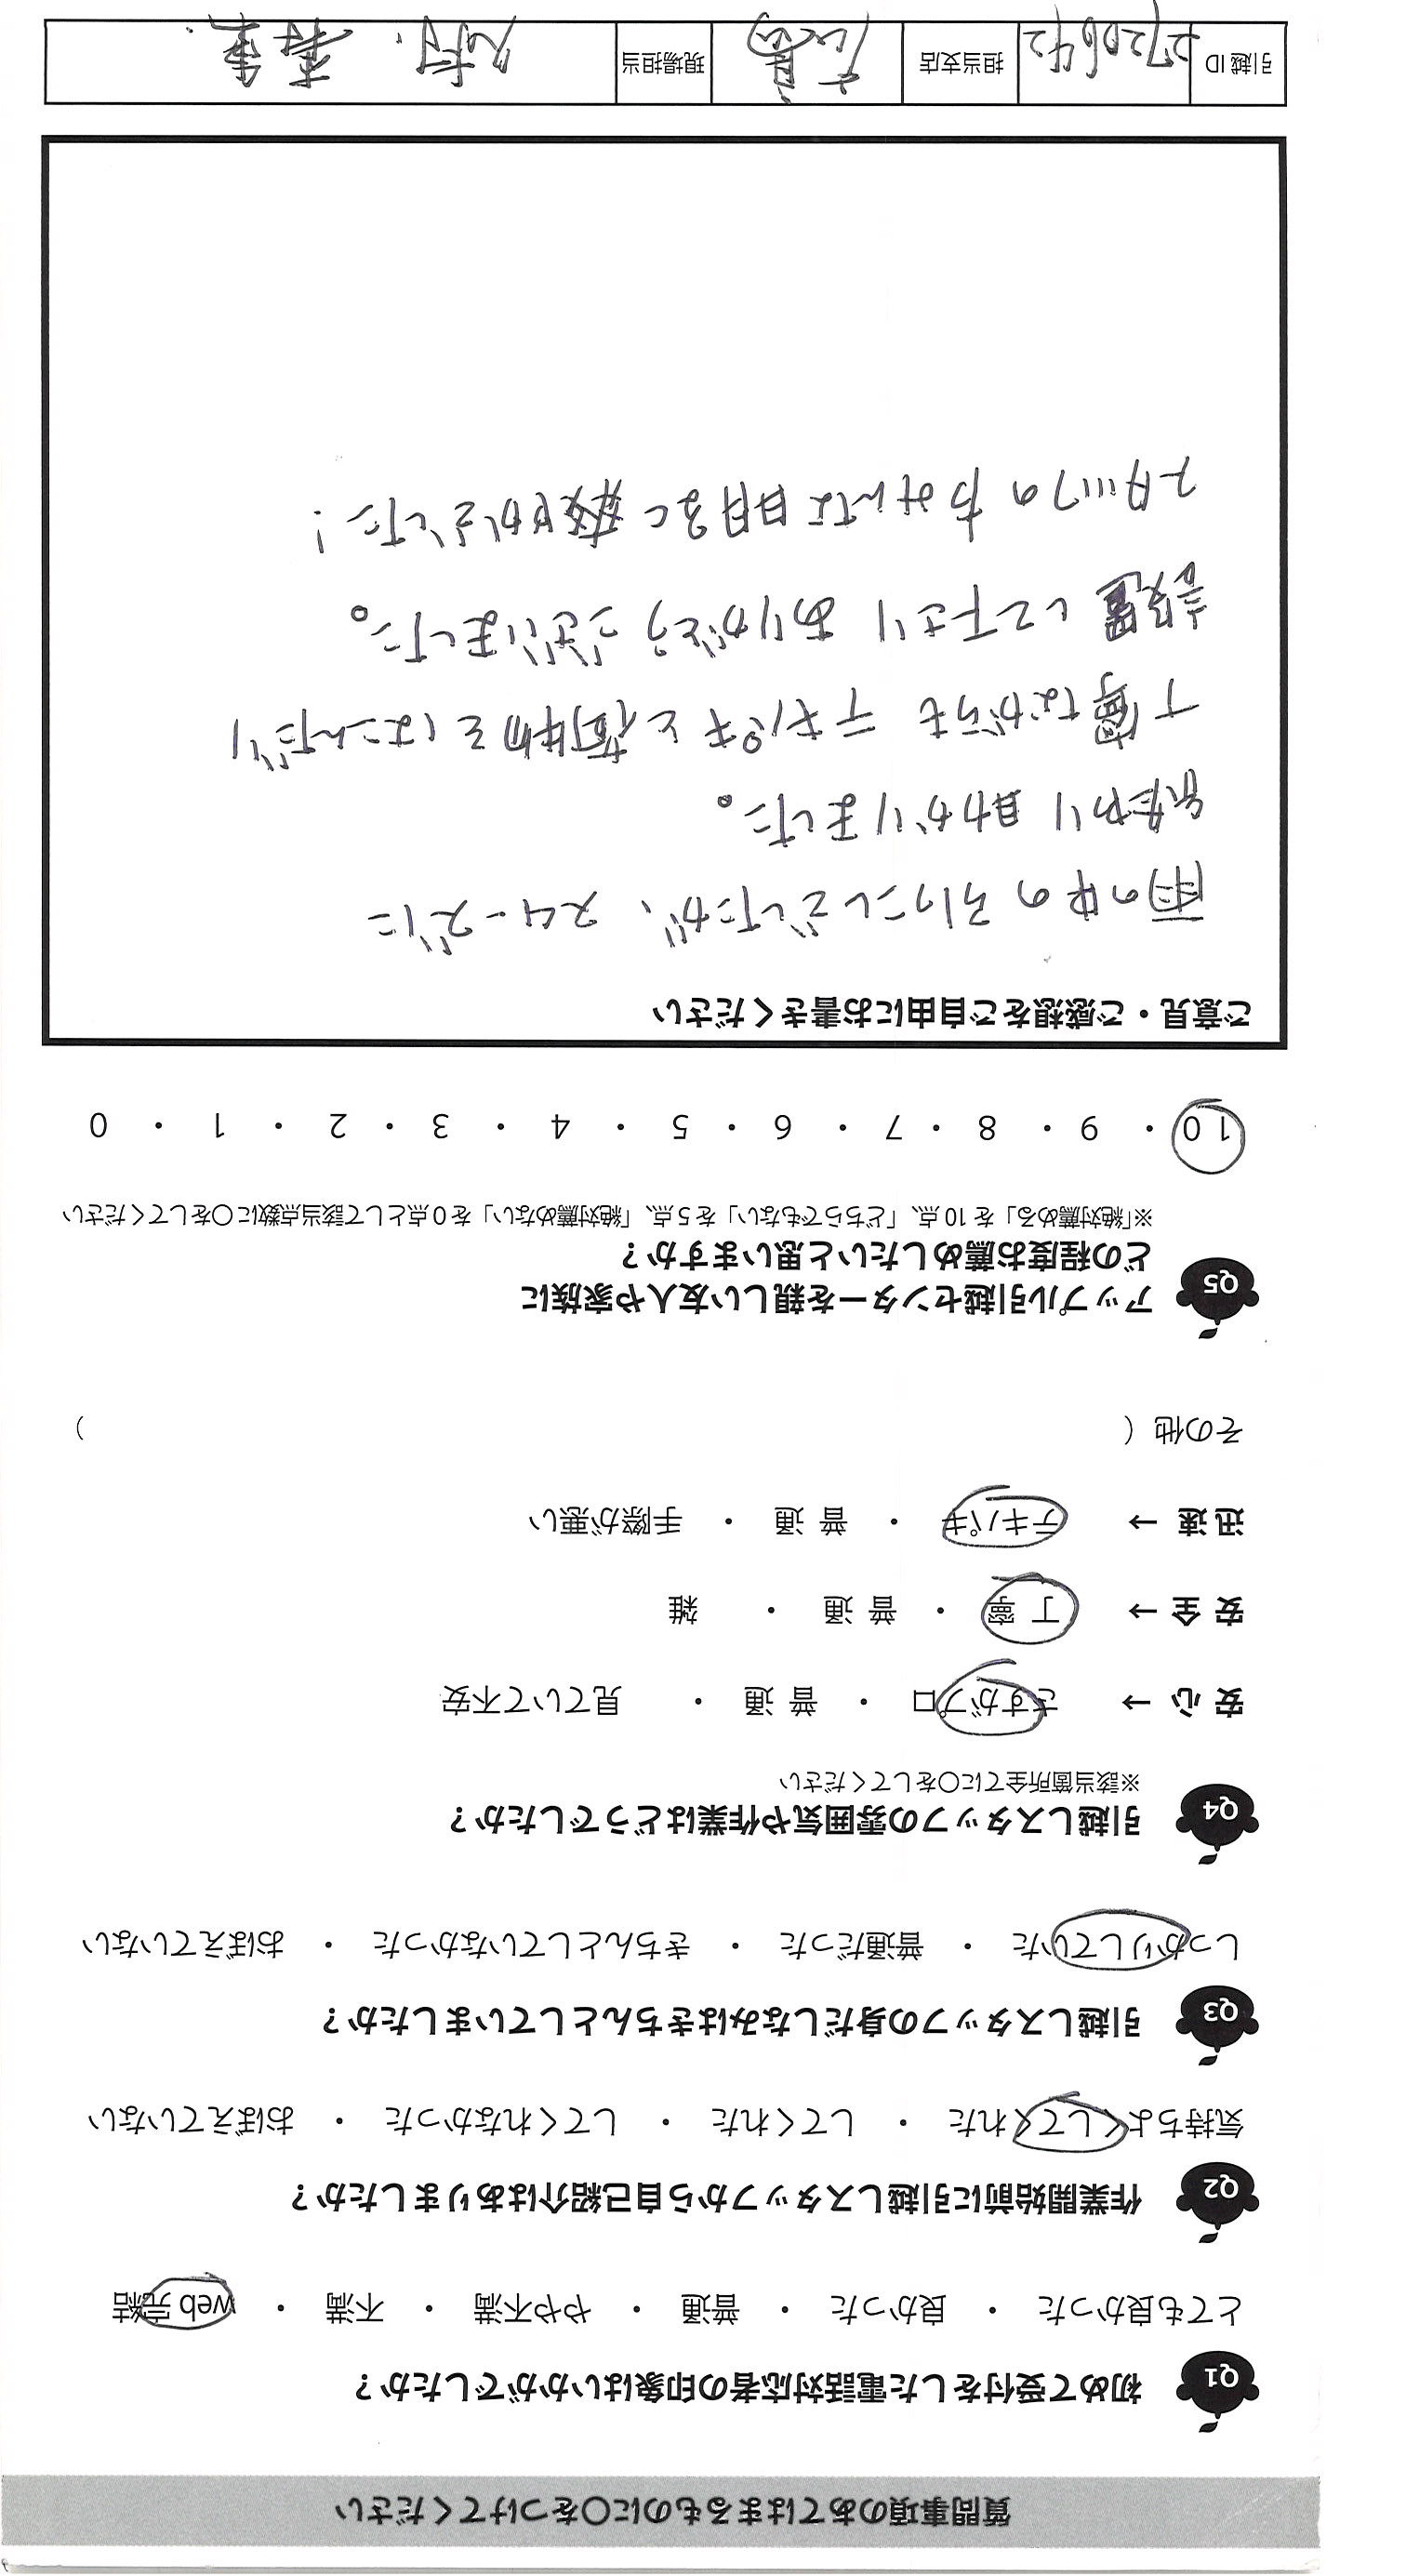 質問事項のあてはまるものに〇をつけてください
Q1 初めて受付をした電話対応者の印象はいかがでしたか？
とても良かった ・ 良かった ・ 普通 ・ やや不満 ・ 不満 ・ web 完結
Q2 作業開始前に引越しスタッフから自己紹介はありましたか？
気持ちよくしてくれた ・ してくれた ・ してくれなかった ・ おぼえていない
Q3 引越しスタッフの身だしなみはきちんとしていましたか？
しっかりしていた ・ 普通だった ・ きちんとしていなかった ・ おぼえていない
Q4 引越しスタッフの雰囲気や作業はどうでしたか？
※該当箇所全てに〇をしてください
安心 → さすがプロ ・ 普通 ・ 見ていて不安
安全 → 丁寧 ・ 普通 ・ 雑
迅速 → テキパキ ・ 普通 ・ 手際が悪い
その他 （ ）
Q5 アップル引越センターを親しい友人や家族に
どの程度お薦めしたいと思いますか？
※「絶対薦める」を 10 点、「どちらでもない」を 5 点、「絶対薦めない」を 0 点として該当点数に〇をしてください
10 ・ 9 ・ 8 ・ 7 ・ 6 ・ 5 ・ 4 ・ 3 ・ 2 ・ 1 ・ 0
ご意見・ご感想をご自由にお書きください
雨の中の引っこしでしたが、スムーズに
終わり助かりました。
丁寧ながらもテキパキと荷物をはこんだり
設置して下さりありがとうございました。
スタッフの方みんな明るく爽やかでした！
引越 ID 2720642 担当支店 広島 現場担当